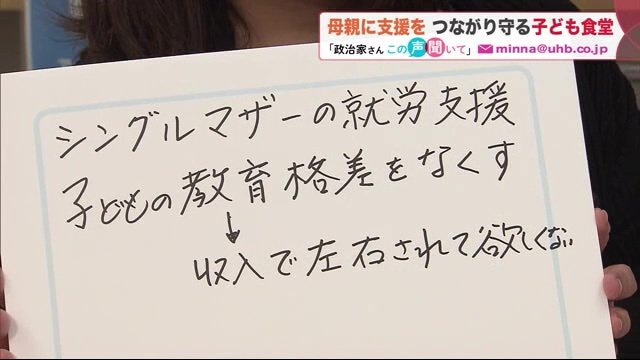 母親に支援を つながり守る子ども食堂
「政治家さん この声聞いて」 minna@uhb.co.jp
シングルマザーの就労支援
子どもの教育格差をなくす
↓
収入で左右されて欲しくない